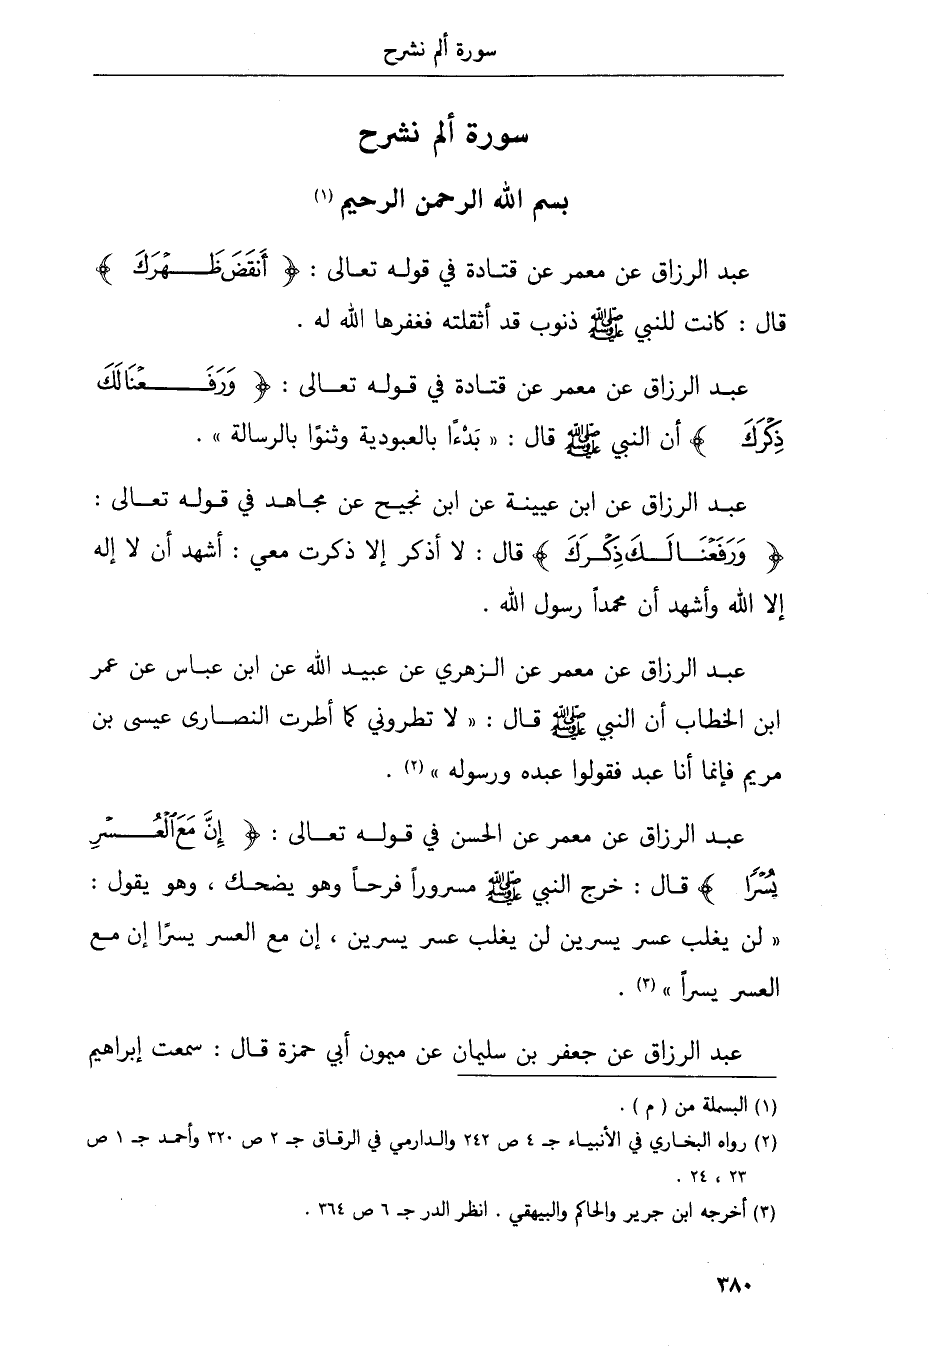 سورة ألم نشرح
سورة ألم نشرح
بسم الله الرحمن الرحيم (١)
عبد الرزاق عن معمر عن قتادة في قوله تعالى : ﴿ أَنقَضَ ظَهْرَكَ ﴾
قال : كانت للنبي ﷺ ذنوب قد أثقلته فغفرها الله له .
عبد الرزاق عن معمر عن قتادة في قوله تعالى : ﴿ وَرَفَعْنَا لَكَ
ذِكْرَكَ ﴾ أن النبي ﷺ قال : « بَدْءًا بالعبودية وثنوًا بالرسالة » .
عبد الرزاق عن ابن عيينة عن ابن نجيح عن مجاهد في قوله تعالى :
﴿ وَرَفَعْنَا لَكَ ذِكْرَكَ ﴾ قال : لا أذكر إلا ذكرت معي : أشهد أن لا إله
إلا الله وأشهد أن محمداً رسول الله .
عبد الرزاق عن معمر عن الزهري عن عبيد الله عن ابن عباس عن عمر
ابن الخطاب أن النبي ﷺ قال : « لا تطروني كما أطرت النصارى عيسى بن
مريم فإنما أنا عبد فقولوا عبده ورسوله » (٢) .
عبد الرزاق عن معمر عن الحسن في قوله تعالى : ﴿ إِنَّ مَعَ ٱلْعُسْرِ
يُسْرًا ﴾ قال : خرج النبي ﷺ مسروراً فرحاً وهو يضحك ، وهو يقول :
« لن يغلب عسر يسرين لن يغلب عسر يسرين ، إن مع العسر يسرًا إن مع
العسر يسراً » (٣) .
عبد الرزاق عن جعفر بن سليمان عن ميمون أبي حمزة قال : سمعت إبراهيم
(١) البسملة من ( م ) .
(٢) رواه البخاري في الأنبياء جـ ٤ ص ٢٤٢ والدارمي في الرقاق جـ ٢ ص ٣٢٠ وأحمد جـ ١ ص
٢٣ ، ٢٤ .
(٣) أخرجه ابن جرير والحاكم والبيهقي . انظر الدر جـ ٦ ص ٣٦٤ .
٣٨٠